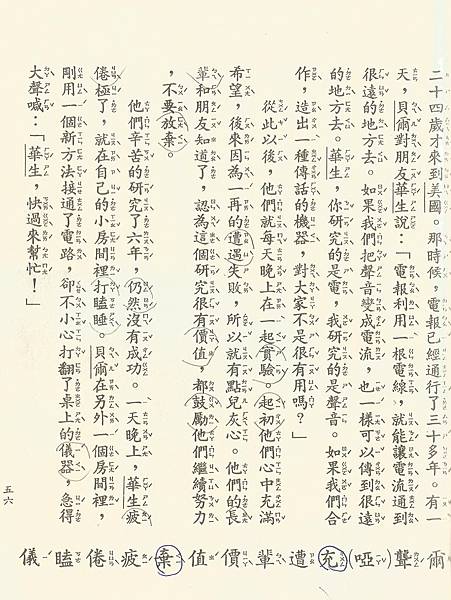 二十四歲才來到美國。那時候，電報已經通行了三十多年。有一
天，貝爾對朋友華生說：「電報利用一根電線，就能讓電流通到
很遠的地方去。如果我們把聲音變成電流，也一樣可以傳到很遠
的地方去。華生，你研究的是電，我研究的是聲音。如果我們合
作，造出一種傳話的機器，對大家不是很有用嗎？」
從此以後，他們就每天晚上在一起實驗。起初他們心中充滿
希望，後來因為一再的遭遇失敗，所以就有點兒灰心。他們的長
輩和朋友知道了，認為這個研究很有價值，都鼓勵他們繼續努力
，不要放棄。
他們辛苦的研究了六年，仍然沒有成功。一天晚上，華生疲
倦極了，就在自己的小房間裡打瞌睡。貝爾在另外一個房間裡，
剛用一個新方法接通了電路，卻不小心打翻了桌上的儀器，急得
大聲喊：「華生，快過來幫忙！」
爾 聾（啞） 充 遭 輩 價 值 棄 疲 倦 瞌 儀
五六